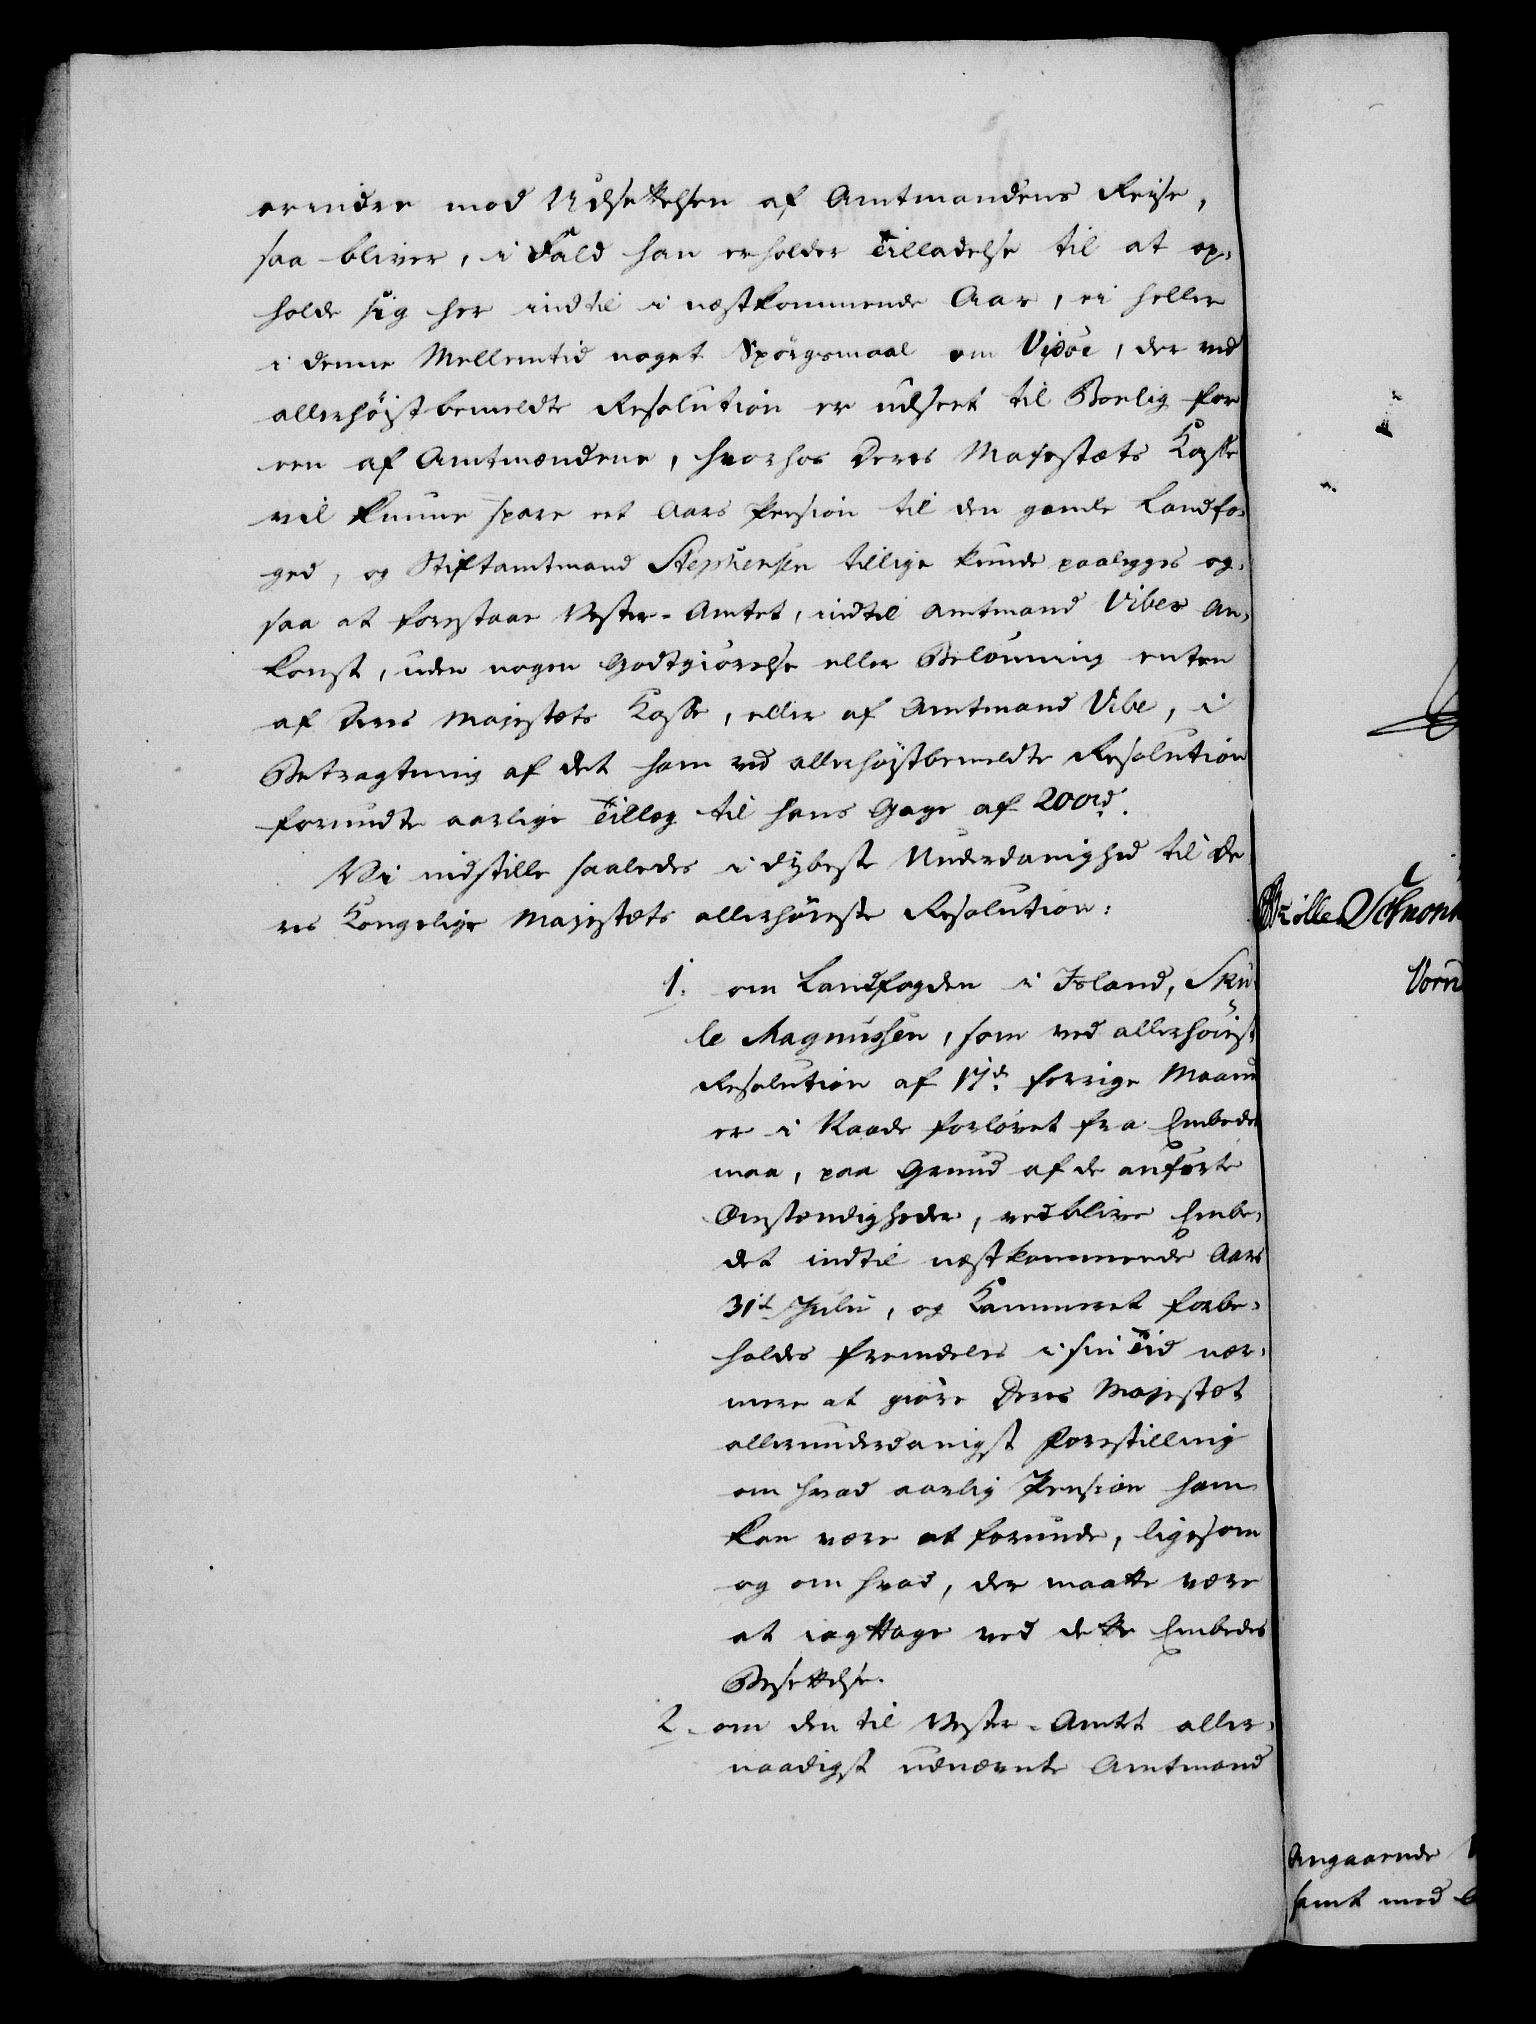 erindre mod Udsættelsen af Amtmandens Reise,
saa bliver, i Fald han erholder Tilladelse til at op-
holde sig her indtil i næstkommende Aar, ei heller
i denne Mellemtid noget Spørgsmaal om Vidöe, der ved
allerhöistbemeldte Resolution er udseet til Boelig for
een af Amtmændene, hvorhos Deres Majestæts Kasse
vil kunne spare eet Aars Pension til den gamle Landfo-
ged, og Stiftamtmand Stephensen tillige kunde paalegges og-
saa at forestaae Vester-Amtet, indtil Amtmand Vibes An-
komst, uden nogen Godtgiörelse eller Belönning enten
af Deres Majestæts Kasse, eller af Amtmand Vibe, i
Betragtning af det ham ved allerhöistbemeldte Resolution
forundte aarlige Tillæg til hans Gage af 200rd.
Vi indstille saaledes i dybeste Underdanighed til De
res Kongelige Majestæts allerhöieste Resolution:
1. om Landfogden i Island, Sku-
le Magnussen, som ved allerhöist
Resolution af 17d. forrige Maaned
er i Naade forlövet fra Embedet
maa, paa Grund af de anförte
Omstændigheder, vedblive Embe-
det indtil næstkommende Aars
31te Julii, og Kammeret forbe-
holdes fremdeles i sin Tid nær-
mere at giöre Deres Majestæt
allerunderdanigst Forestilling
om hvad aarlig Pension ham
kan være at forunde, ligesom
og om hvad, der maatte være
at iagttage ved dette Embedes
Besættelse.
2. om den til Vester-Amtet aller-
naadigst udnævnte Amtmand
Angaaende
samt med